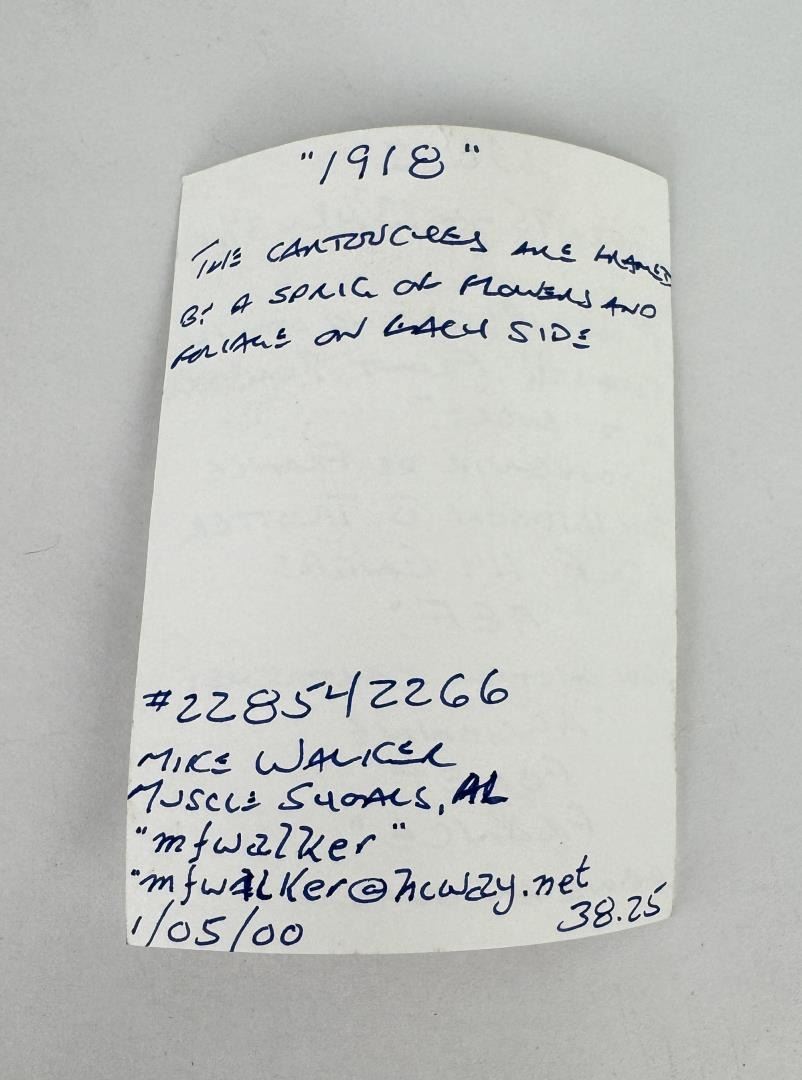 "1918"
THE CARTOUCHES ARE FRAMED
BY A SPRIG OF FLOWERS AND
FOLIAGE ON EACH SIDE
#228542266
MIKE WALKER
MUSCLE SHOALS, AL
"mfwalker"
"mfwalker@hcway.net
1/05/00
38.25